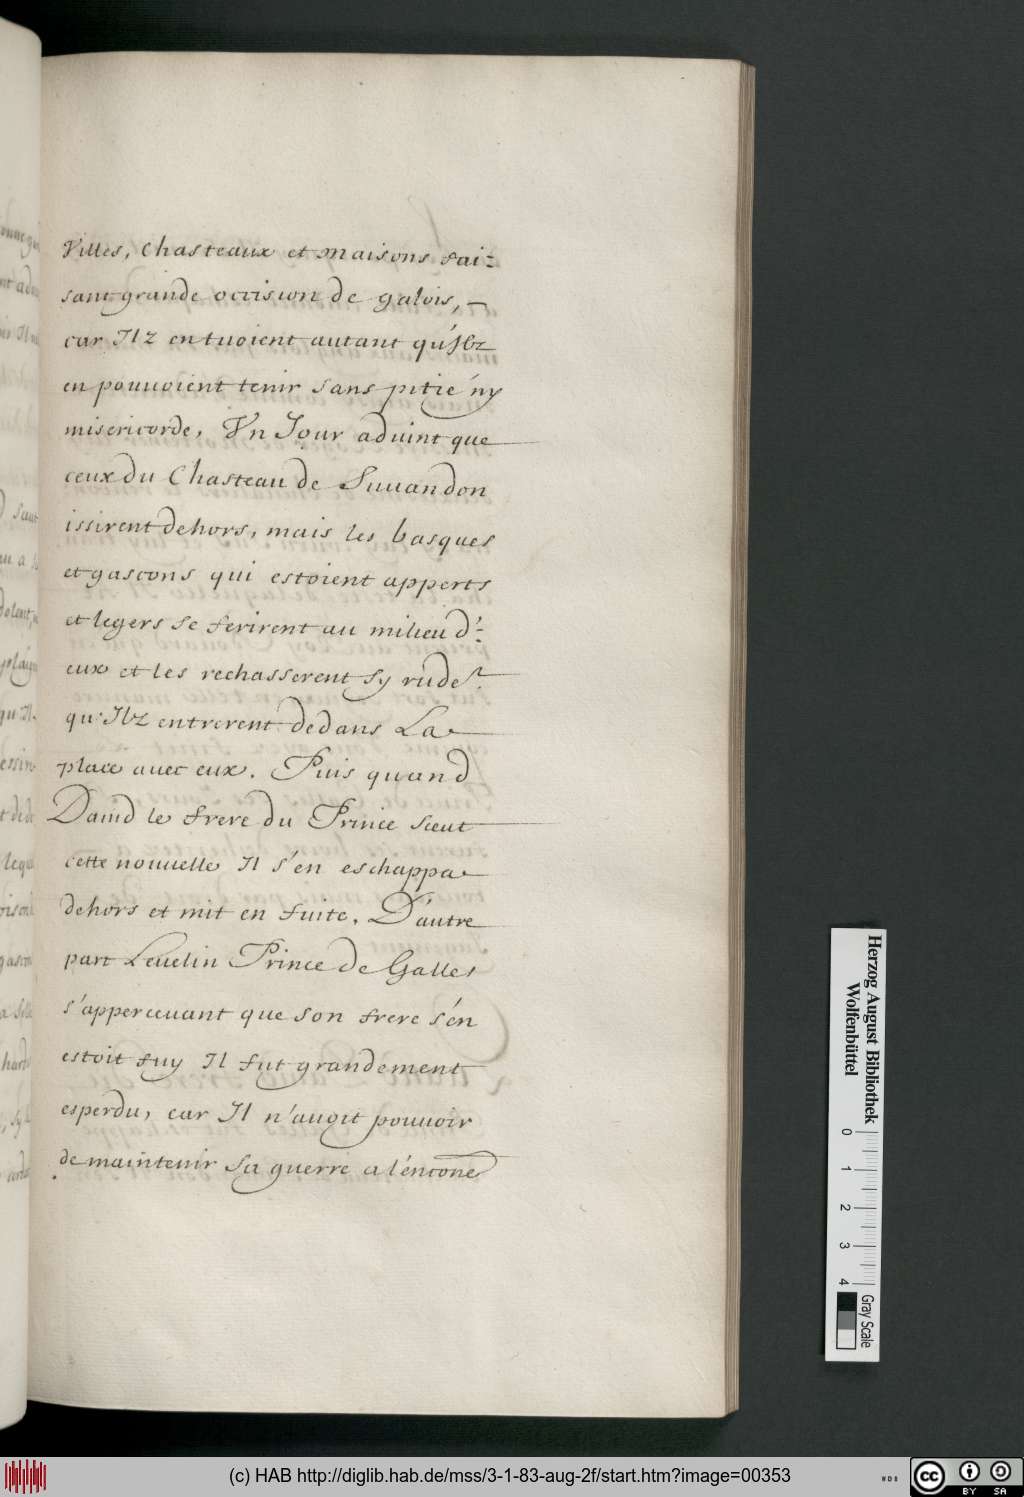 Villes, Chasteaux et maisons fai-
sant grande occision de galois,
car Ilz en tuoient autant qu'Ilz
en pouuoient tenir sans pitié ny
misericorde, Vn Jour aduint que
ceux du Chasteau de Suuandon
issirent dehors, mais les basques
et gascons qui estoient apperts
et legers se ferirent au milieu d'-
eux et les rechasserent sy rudet
qu'Ilz entrerent dedans La
place auec eux. Puis quand
Dauid le frere du Prince sceut
cette nouuelle Il s'en eschappa
dehors et mit en fuite. D'autre
part Leuelin Prince de Galles
s'apperceuant que son frere s'en
estoit fuy Il fut grandement
esperdu, car Il n'auoit pouuoir
de maintenir sa guerre a l'encontre
Herzog August Bibliothek
Wolfenbüttel
0 1 2 3 4
Gray Scale
(c) HAB http://diglib.hab.de/mss/3-1-83-aug-2f/start.htm?image=00353
WDB
CC BY SA